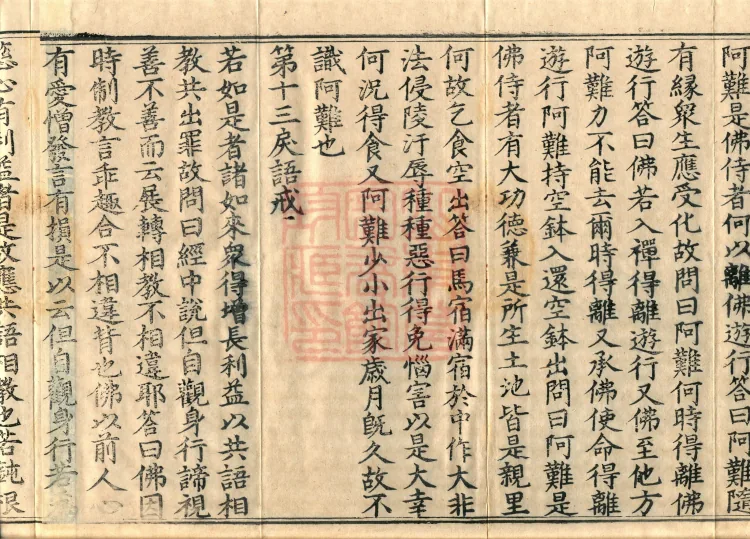 阿難是佛侍者何以離佛遊行答曰阿難隨
有緣衆生應受化故問曰阿難何時得離佛
遊行答曰佛若入禪得離遊行又佛至他方
阿難力不能去爾時得離又承佛使命得離
遊行阿難持空鉢入還空鉢出問曰阿難是
佛侍者有大功德兼是所生土地皆是親里
何故乞食空出答曰馬宿滿宿於中作大非
法侵陵汙辱種種惡行得免惱害以是大幸
何況得食又阿難少小出家歲月旣久故不
識阿難也
第十三戾語戒
若如是者諸如來衆得增長利益以共語相
教共出罪故問曰經中說但自觀身行諦視
善不善而云展轉相教不相違耶答曰佛因
時制教言乖趣合不相違背也佛以前人心
有愛憎發言有損是以云但自觀身行若
慈心有利益者是故應共語相教也若鈍根